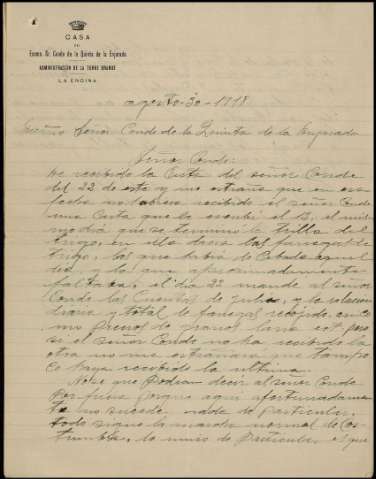 CASA
DEL
Excmo. Sr. Conde de la Quinta de la Enjarada
ADMINISTRACIÓN DE LA TORRE GRANDE
LA ENCINA
agosto-30-1918
Señor Conde de la Quinta de la Enjarada
Señor Conde:
He recibido la Carta del señor Conde
del 22 de este y me estraña que en esa
fecha no hubiera recibido el señor Conde
una Carta que le escribí el 13, el mis
mo dia que se terminó la trilla del
trigo, en ella dava las fanegas de
trigo, las que habia de Cebada aquel
dia y lo que aproximadamente
faltava, el dia 22 mande al señor
Conde las Cuentas de julio, y la relacion
diaria y total de fanegas recojida,
si el señor Conde no ha recibido la
otra no me estrañara que tampo
co haya recibido la ultima.
Nose que podian decir al señor Conde
por fuera porque aqui afortunadamen
te no sucede nada de particular,
todo sigue la marcha normal de Cos
tumbre, lo unico de particular es que